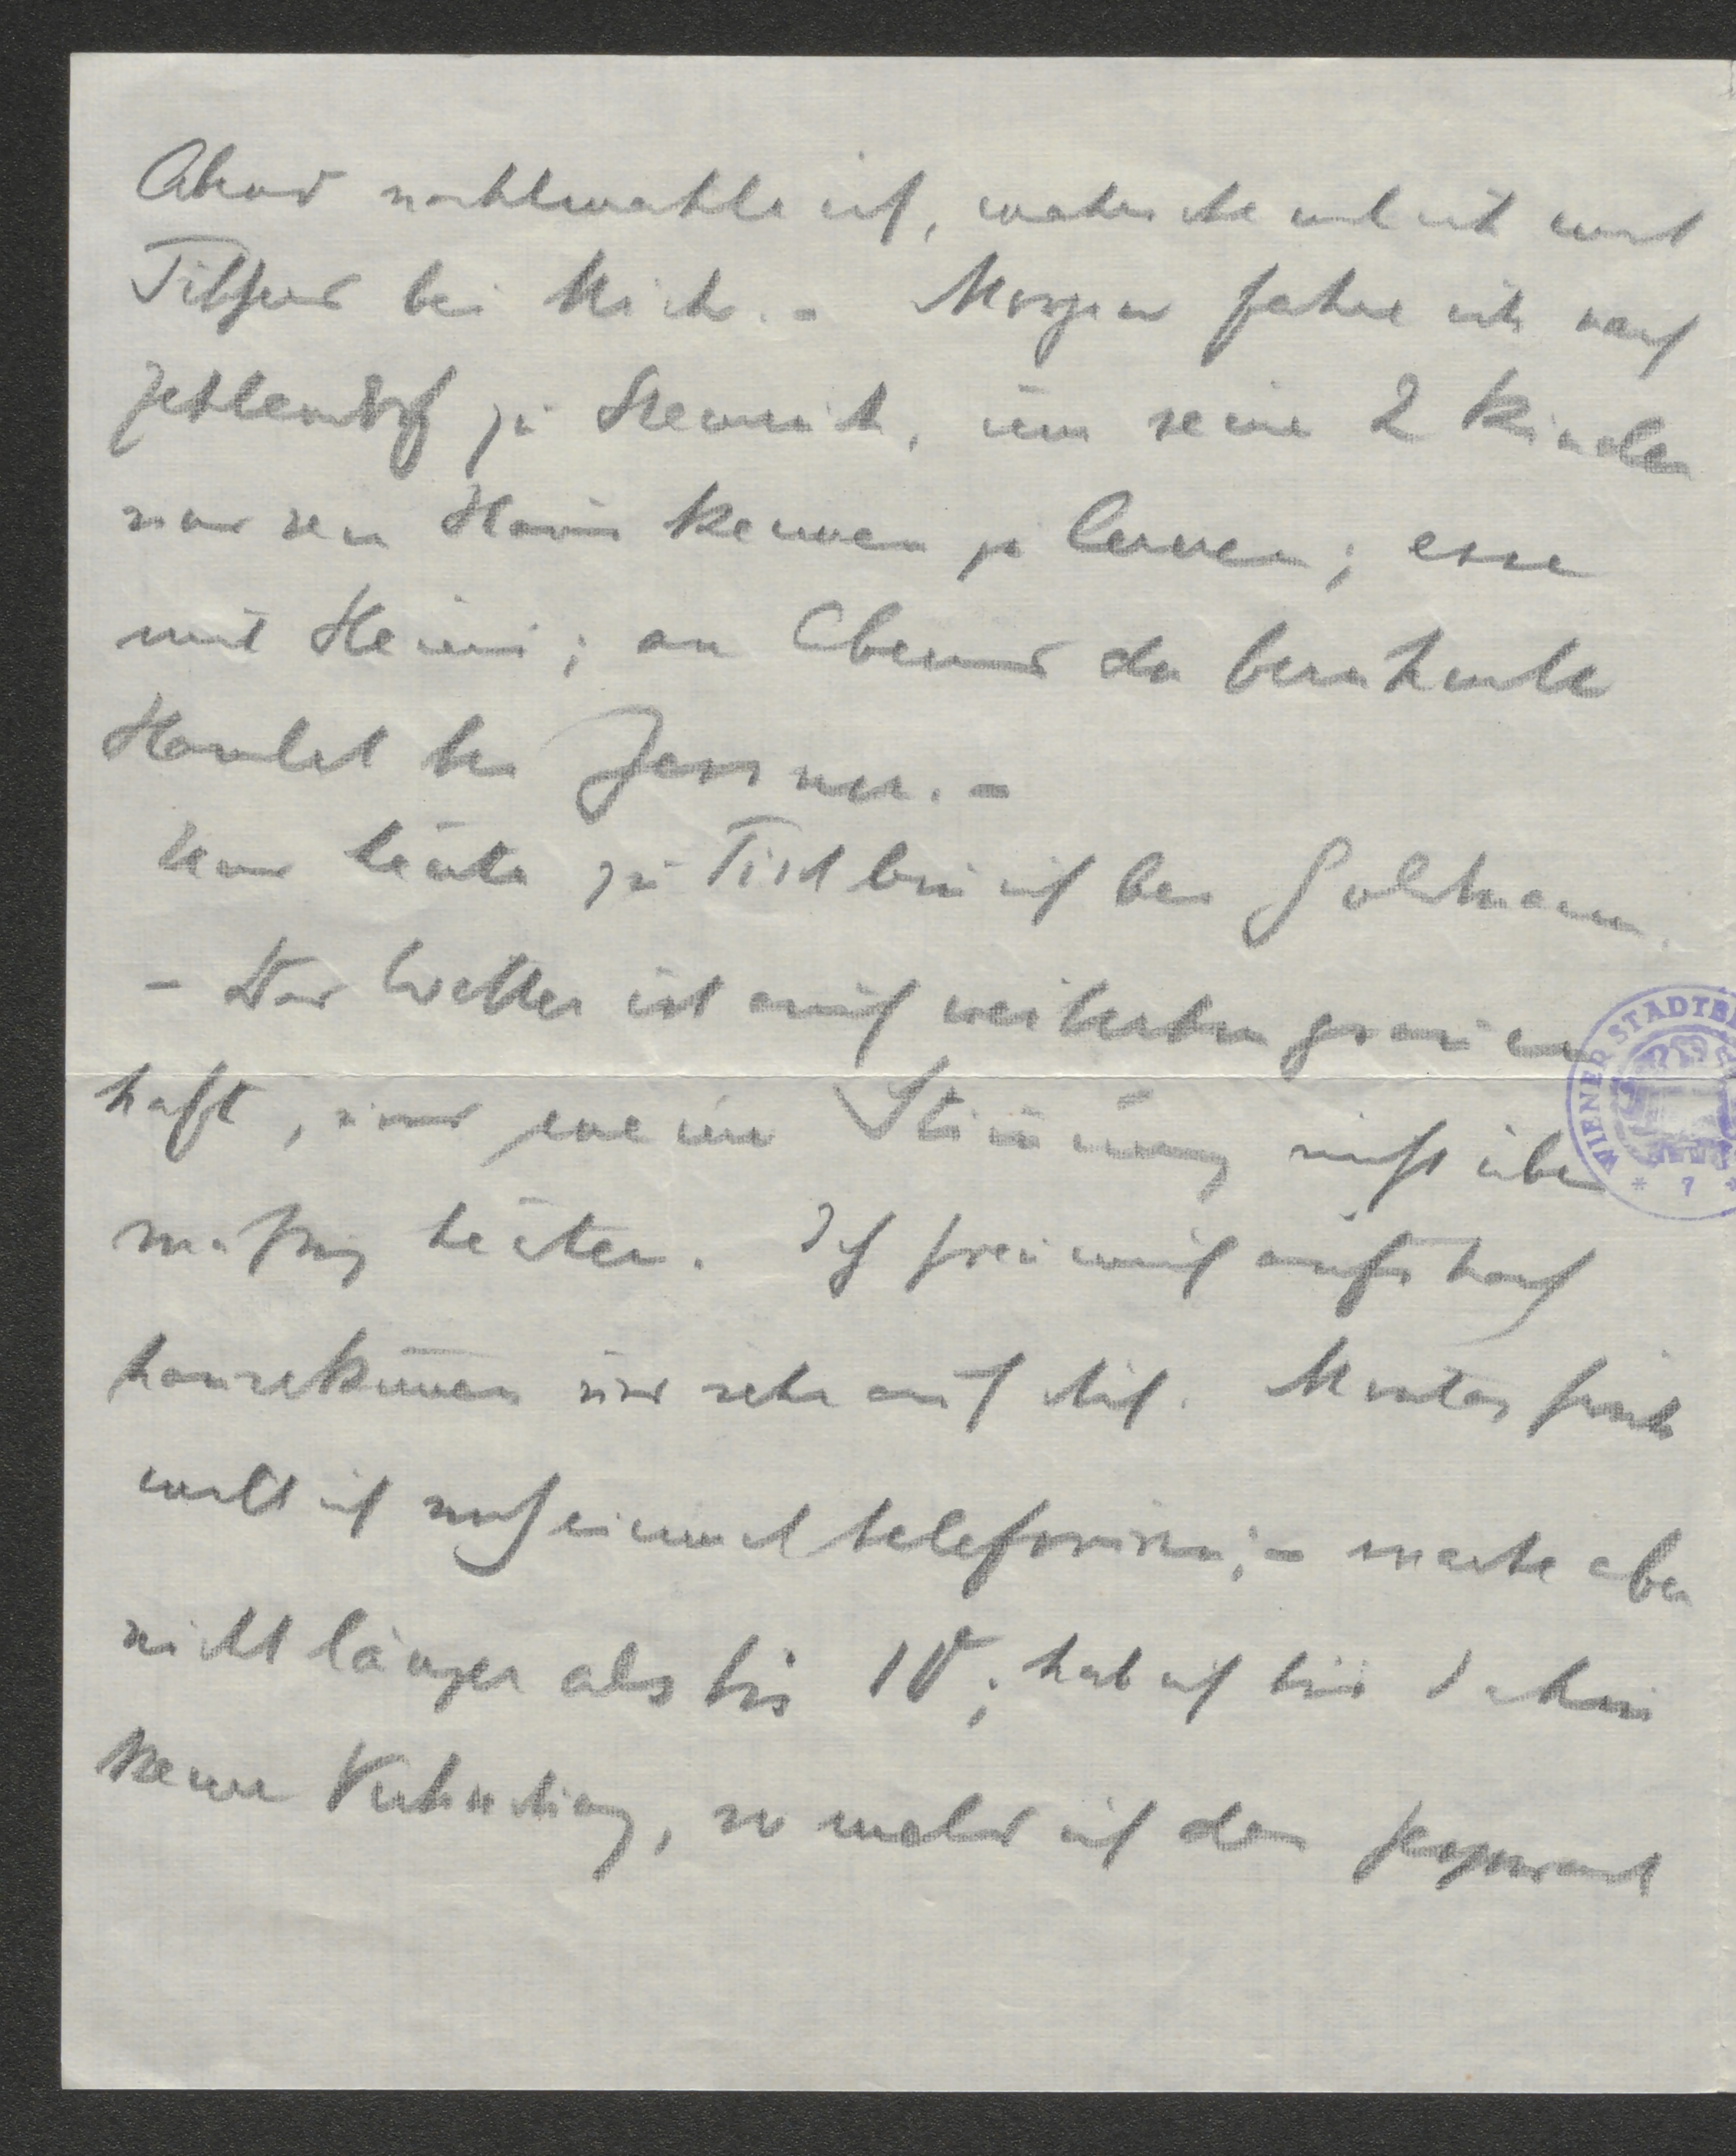 Abend nachtmahle ich, wahrscheinlich mit
bei Mich. – Morgen fahre ich nach
Zehlendorf zu Heinrich, um seine 2 Kinder
und sein Haus kennen zu lernen; esse
mit Heini; am Abend der berühmte
Hamlet bei Jessner. –
Und heute zu Tisch bin ich bei Goldmann.
– Das Wetter ist auch weiterhin grauen
haft, und meine Stimmung nicht über
mäßig heiter. Ich freu mich aufs Nach
hausekommen und sehr auf Dich. Montag früh
wollt ich noch einmal telefoniren; – warte aber
nicht länger als bis 10; hab ich bis dahin
keine Verbindung, so meld ich den
WIENER STADTB
* 7 *